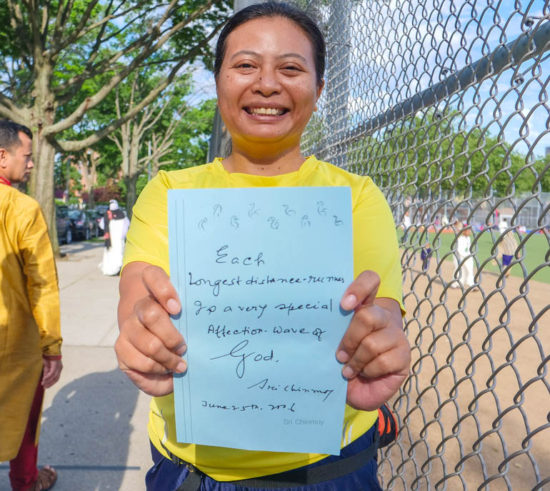 Each
Longest distance-runner
Is a very special
Affection-wave of
God.
Sri Chinmoy
June 25th, 2006
Sri Chinmoy